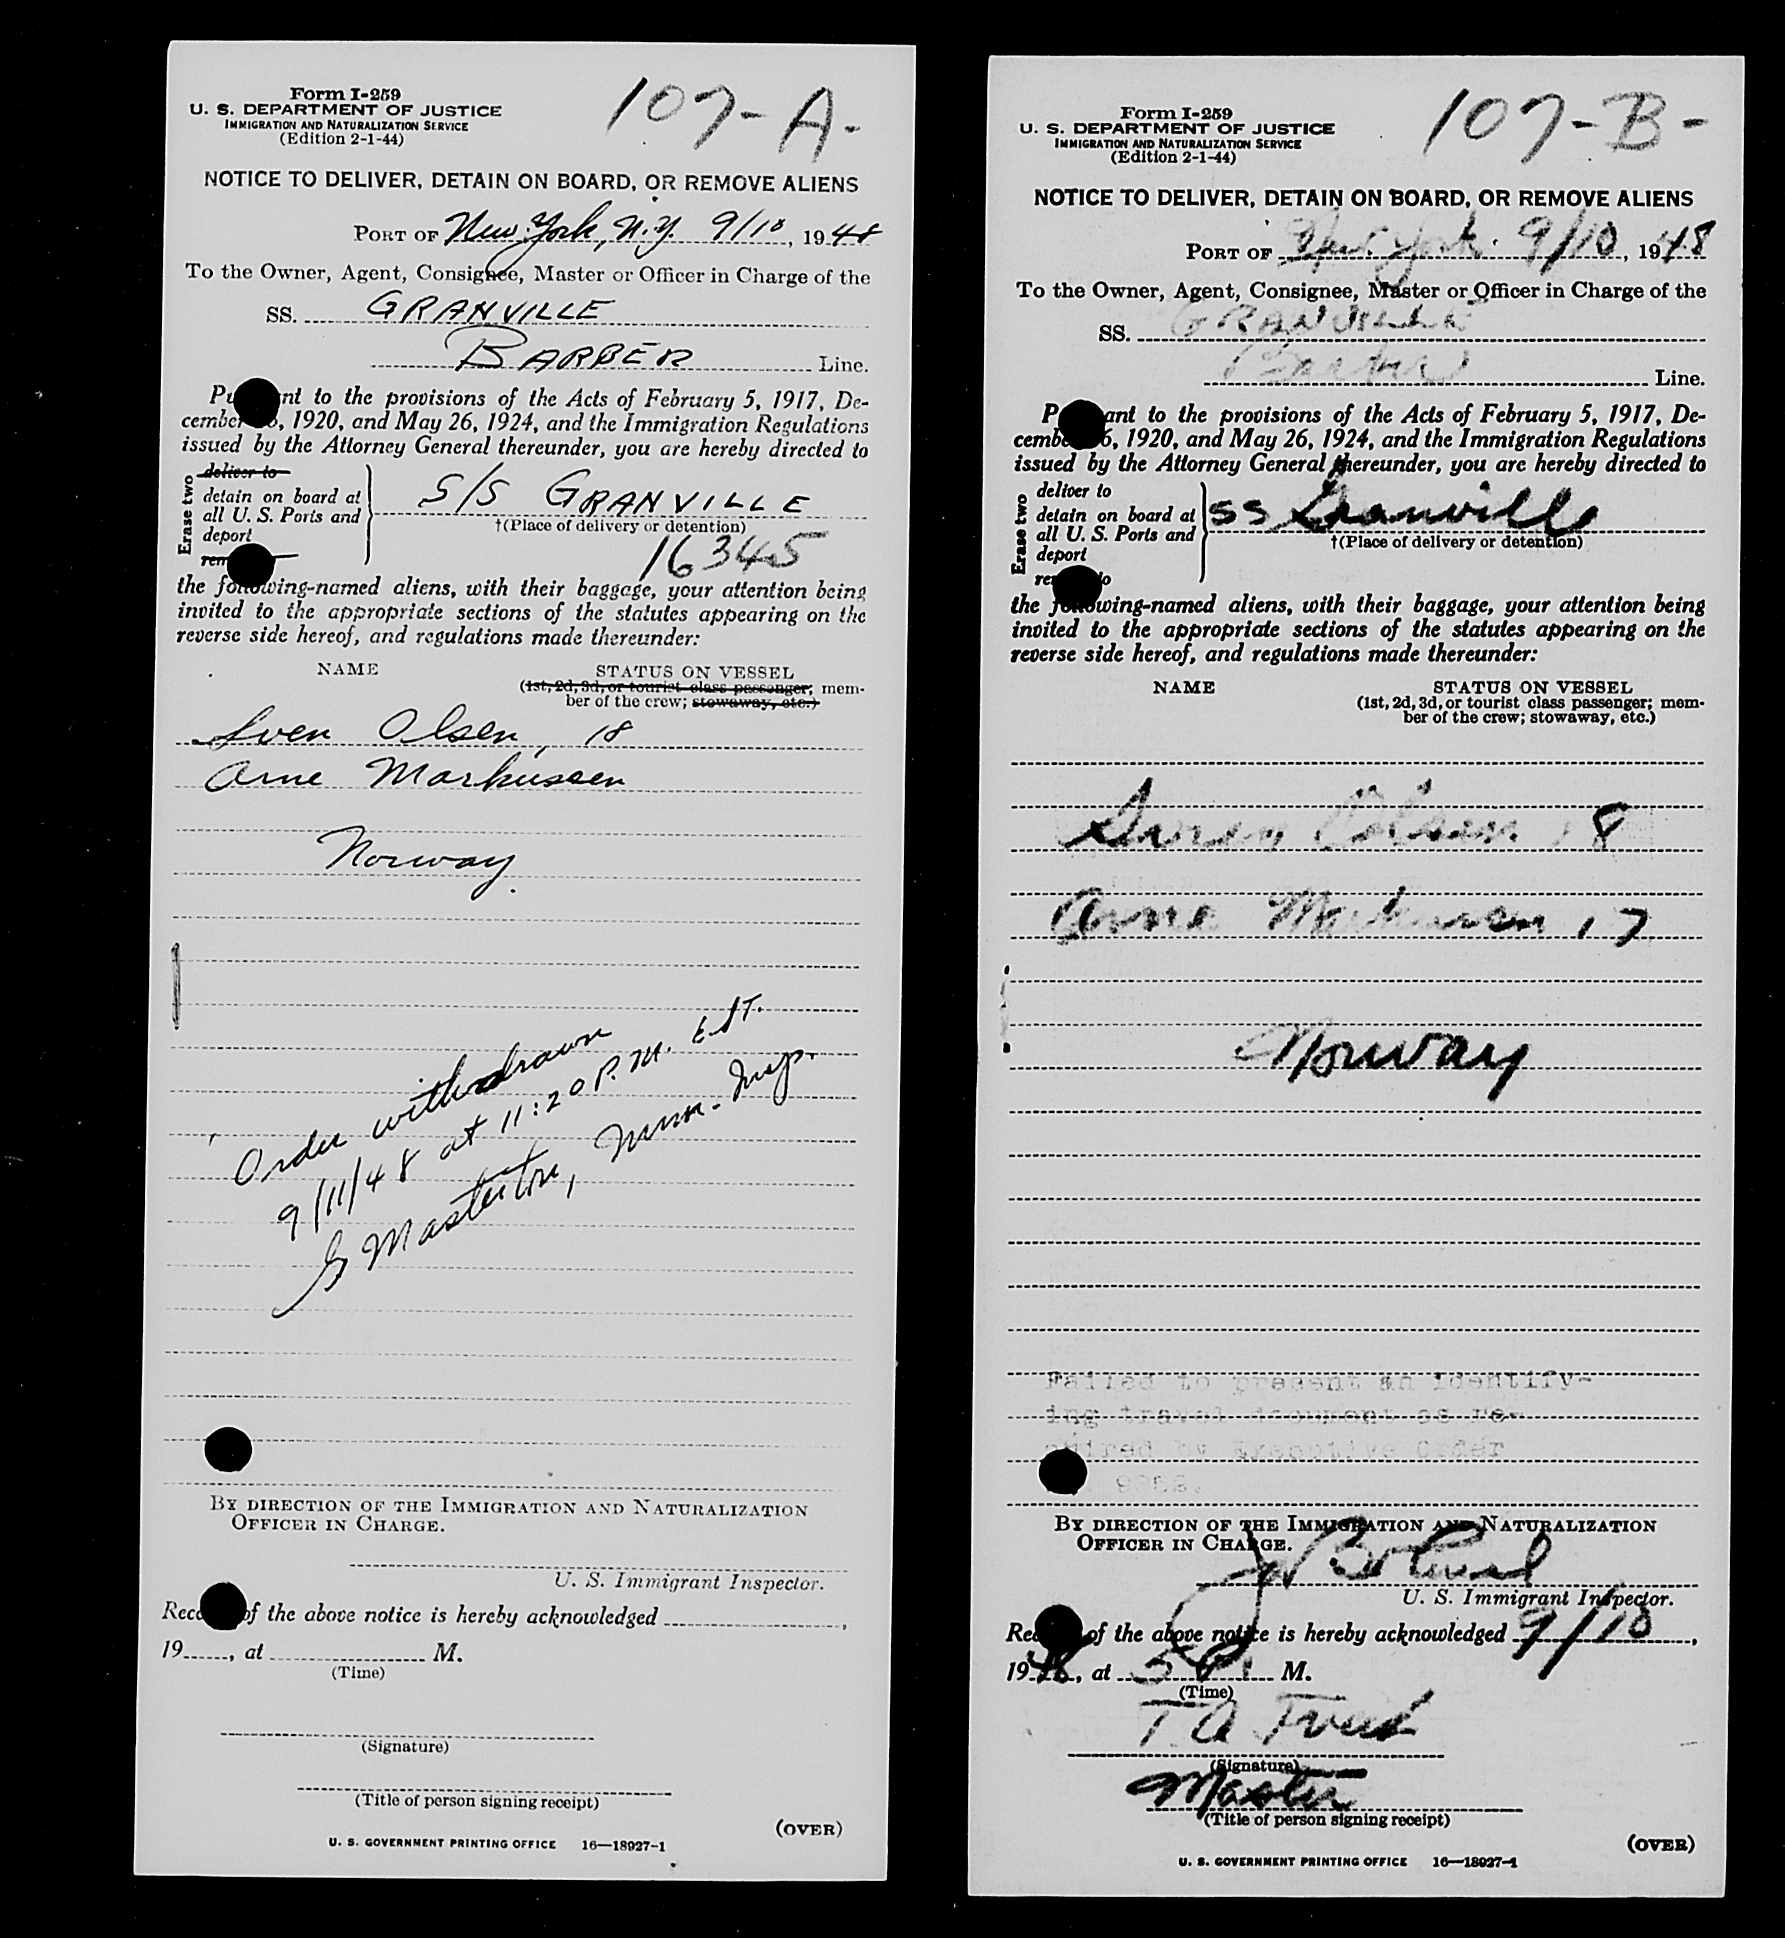 107-A-
Form I-259
U. S. DEPARTMENT OF JUSTICE
IMMIGRATION AND NATURALIZATION SERVICE
(Edition 2-1-44)
NOTICE TO DELIVER, DETAIN ON BOARD, OR REMOVE ALIENS
PORT OF New York, N.Y. 9/10, 1948
To the Owner, Agent, Consignee, Master or Officer in Charge of the
SS. GRANVILLE
BARBER Line.
Pu nt to the provisions of the Acts of February 5, 1917, De-
cember 6, 1920, and May 26, 1924, and the Immigration Regulations
issued by the Attorney General thereunder, you are hereby directed to
Erase two
deliver to
detain on board at
all U. S. Ports and
deport
rem
S/S GRANVILLE
†(Place of delivery or detention)
16345
the following-named aliens, with their baggage, your attention being
invited to the appropriate sections of the statutes appearing on the
reverse side hereof, and regulations made thereunder:
NAME STATUS ON VESSEL
(1st, 2d, 3d, or tourist class passenger; mem-
ber of the crew; stowaway, etc.)
Sven Olsen, 18
Arne Markussen
Norway
Order withdrawn
9/11/48 at 11:20 P.M. EST.
G Masterton, Imm. Insp.
BY DIRECTION OF THE IMMIGRATION AND NATURALIZATION
OFFICER IN CHARGE.
U. S. Immigrant Inspector.
Rec of the above notice is hereby acknowledged ,
19 , at M.
(Time)
(Signature)
(Title of person signing receipt)
(OVER)
U. S. GOVERNMENT PRINTING OFFICE 16—18927-1
107-B-
Form I-259
U. S. DEPARTMENT OF JUSTICE
IMMIGRATION AND NATURALIZATION SERVICE
(Edition 2-1-44)
NOTICE TO DELIVER, DETAIN ON BOARD, OR REMOVE ALIENS
PORT OF New York 9/10, 1948
To the Owner, Agent, Consignee, Master or Officer in Charge of the
SS. GRANVILLE
Barber Line.
P ant to the provisions of the Acts of February 5, 1917, De-
cemb 6, 1920, and May 26, 1924, and the Immigration Regulations
issued by the Attorney General thereunder, you are hereby directed to
Erase two
deliver to
detain on board at
all U. S. Ports and
deport
re to
SS Granville
†(Place of delivery or detention)
the following-named aliens, with their baggage, your attention being
invited to the appropriate sections of the statutes appearing on the
reverse side hereof, and regulations made thereunder:
NAME STATUS ON VESSEL
(1st, 2d, 3d, or tourist class passenger; mem-
ber of the crew; stowaway, etc.)
Olsen 18
Arne Markussen 17
Norway
Failed to present an identify-
ing travel document as re-
quired by Executive Order
BY DIRECTION OF THE IMMIGRATION AND NATURALIZATION
OFFICER IN CHARGE.
U. S. Immigrant Inspector.
Re of the above notice is hereby acknowledged 9/10,
1948, at 5 P. M.
(Time)
T. A.
(Signature)
Master
(Title of person signing receipt)
(OVER)
U. S. GOVERNMENT PRINTING OFFICE 16—18927-1